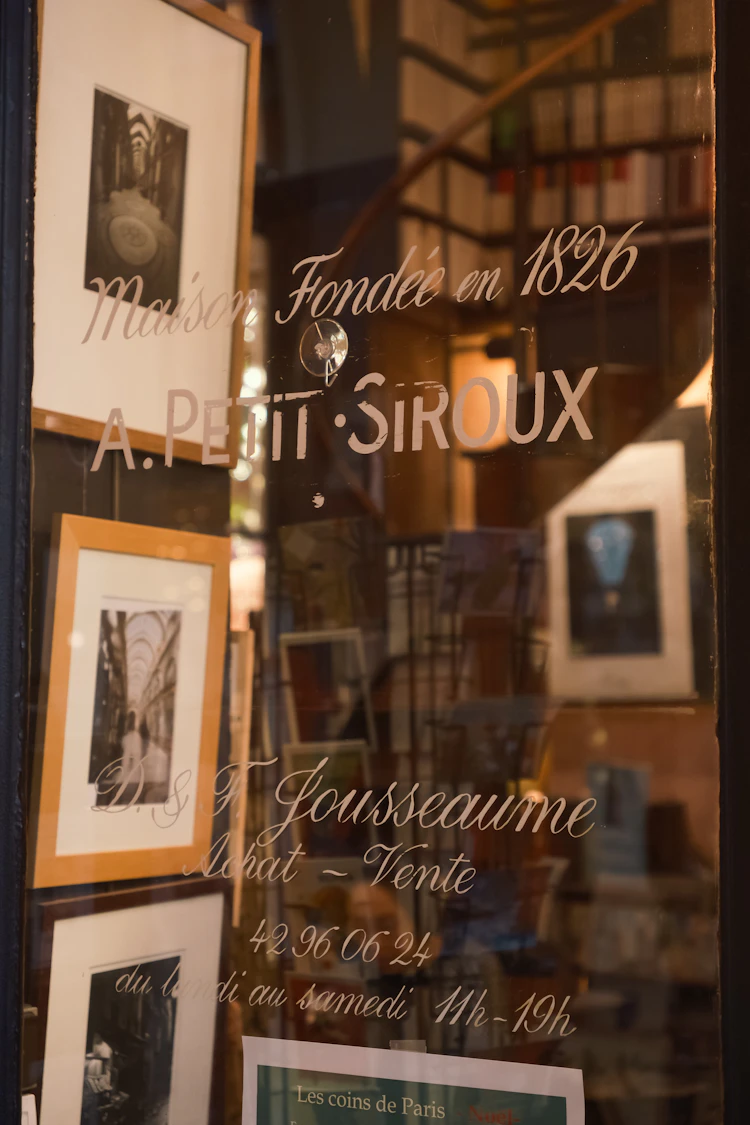 Maison Fondée en 1826
A. PETIT·SIROUX
D. & F. Jousseaume
Achat ~ Vente
42 96 06 24
du lundi au samedi 11h-19h
Les coins de Paris